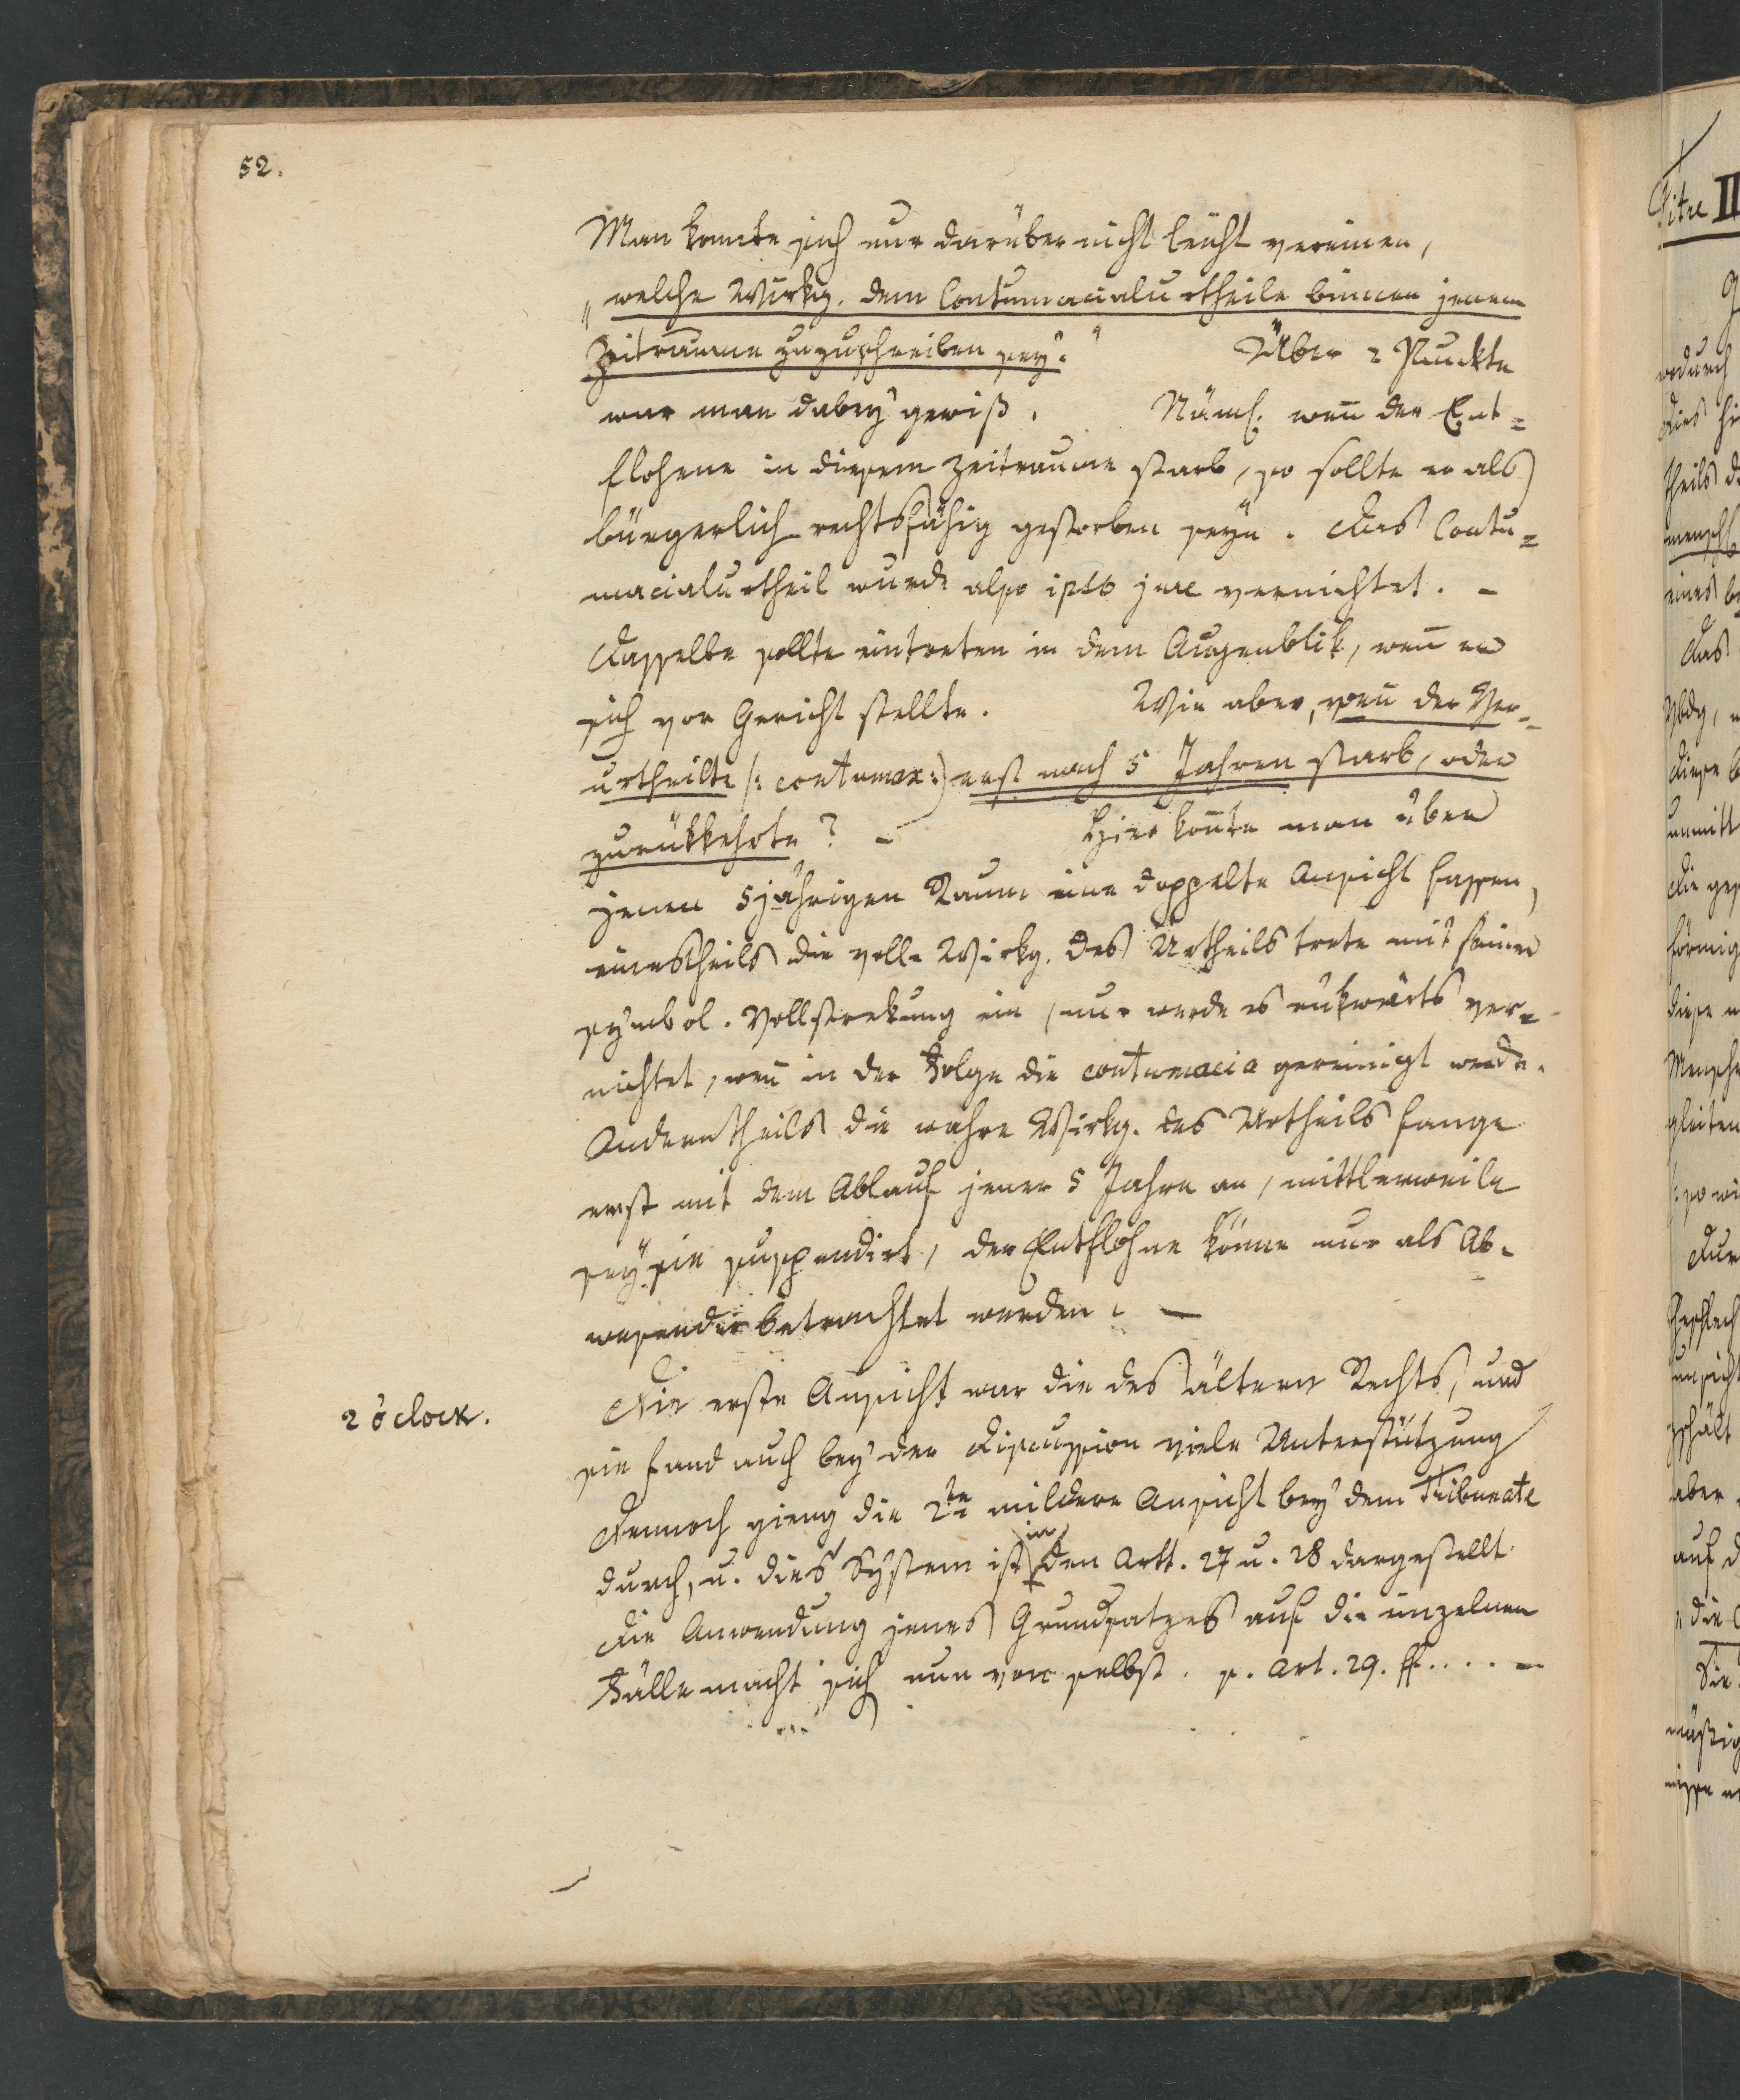 52.
Man konnte sich nur darüber nicht leicht vereinen,
„welche Wirkg. dem Contumacialurtheile binnen jenem
Zeitraume zuzuschreiben sey." Über 2 Punckte
war man dabey gewiß. Näml. weñ der Ent=
flohene in diesem Zeitraume starb, so sollte er als
bürgerlich rechtsfähig gestorben seyn. Das Contu=
macialurtheil wurde also ipso jure vernichtet. –
Dasselbe sollte eintreten in dem Augenblik, weñ er
sich vor Gericht stellte. Wie aber, weñ der Ver=
urtheilte /: contumax :/ erst nach 5 Jahren starb, oder
zurükkehrte? – Hier koñte man über
jenen 5jährigen Raum eine doppelte Ansicht fassen,
einestheils die volle Wirkg. des Urtheils trete mit seiner
symbol. Vollstrekung ein, nur werde es rükwärts ver=
nichtet, weñ in der Folge die contumacia gereinigt werde.
Anderntheils die wahre Wirkg. des Urtheils fange
erst mit dem Ablauf jener 5 Jahre an, mittlerweile
sey sie suspendirt, der Entflohne könne nur als Ab=
wesender betrachtet werden. –
2 o'clock.
Die erste Ansicht war die des ältern Rechts, und
sie fand auch bey der Discussion viele Unterstützung
Dennoch gieng die 2te mildere Ansicht bey dem Tribunate
durch, u. dies System ist in den Artt. 27 u. 28 dargestellt.
Die Anwendung jenes Grundsatzes auf die einzelnen
Fälle macht sich nun von selbst. s. Art. 29. ff. . . . –
Titre II
wodurch
dies
theils
eines
Das
diese
unmitt
förmig
diese
gleiten
aber
auf
die
Sie